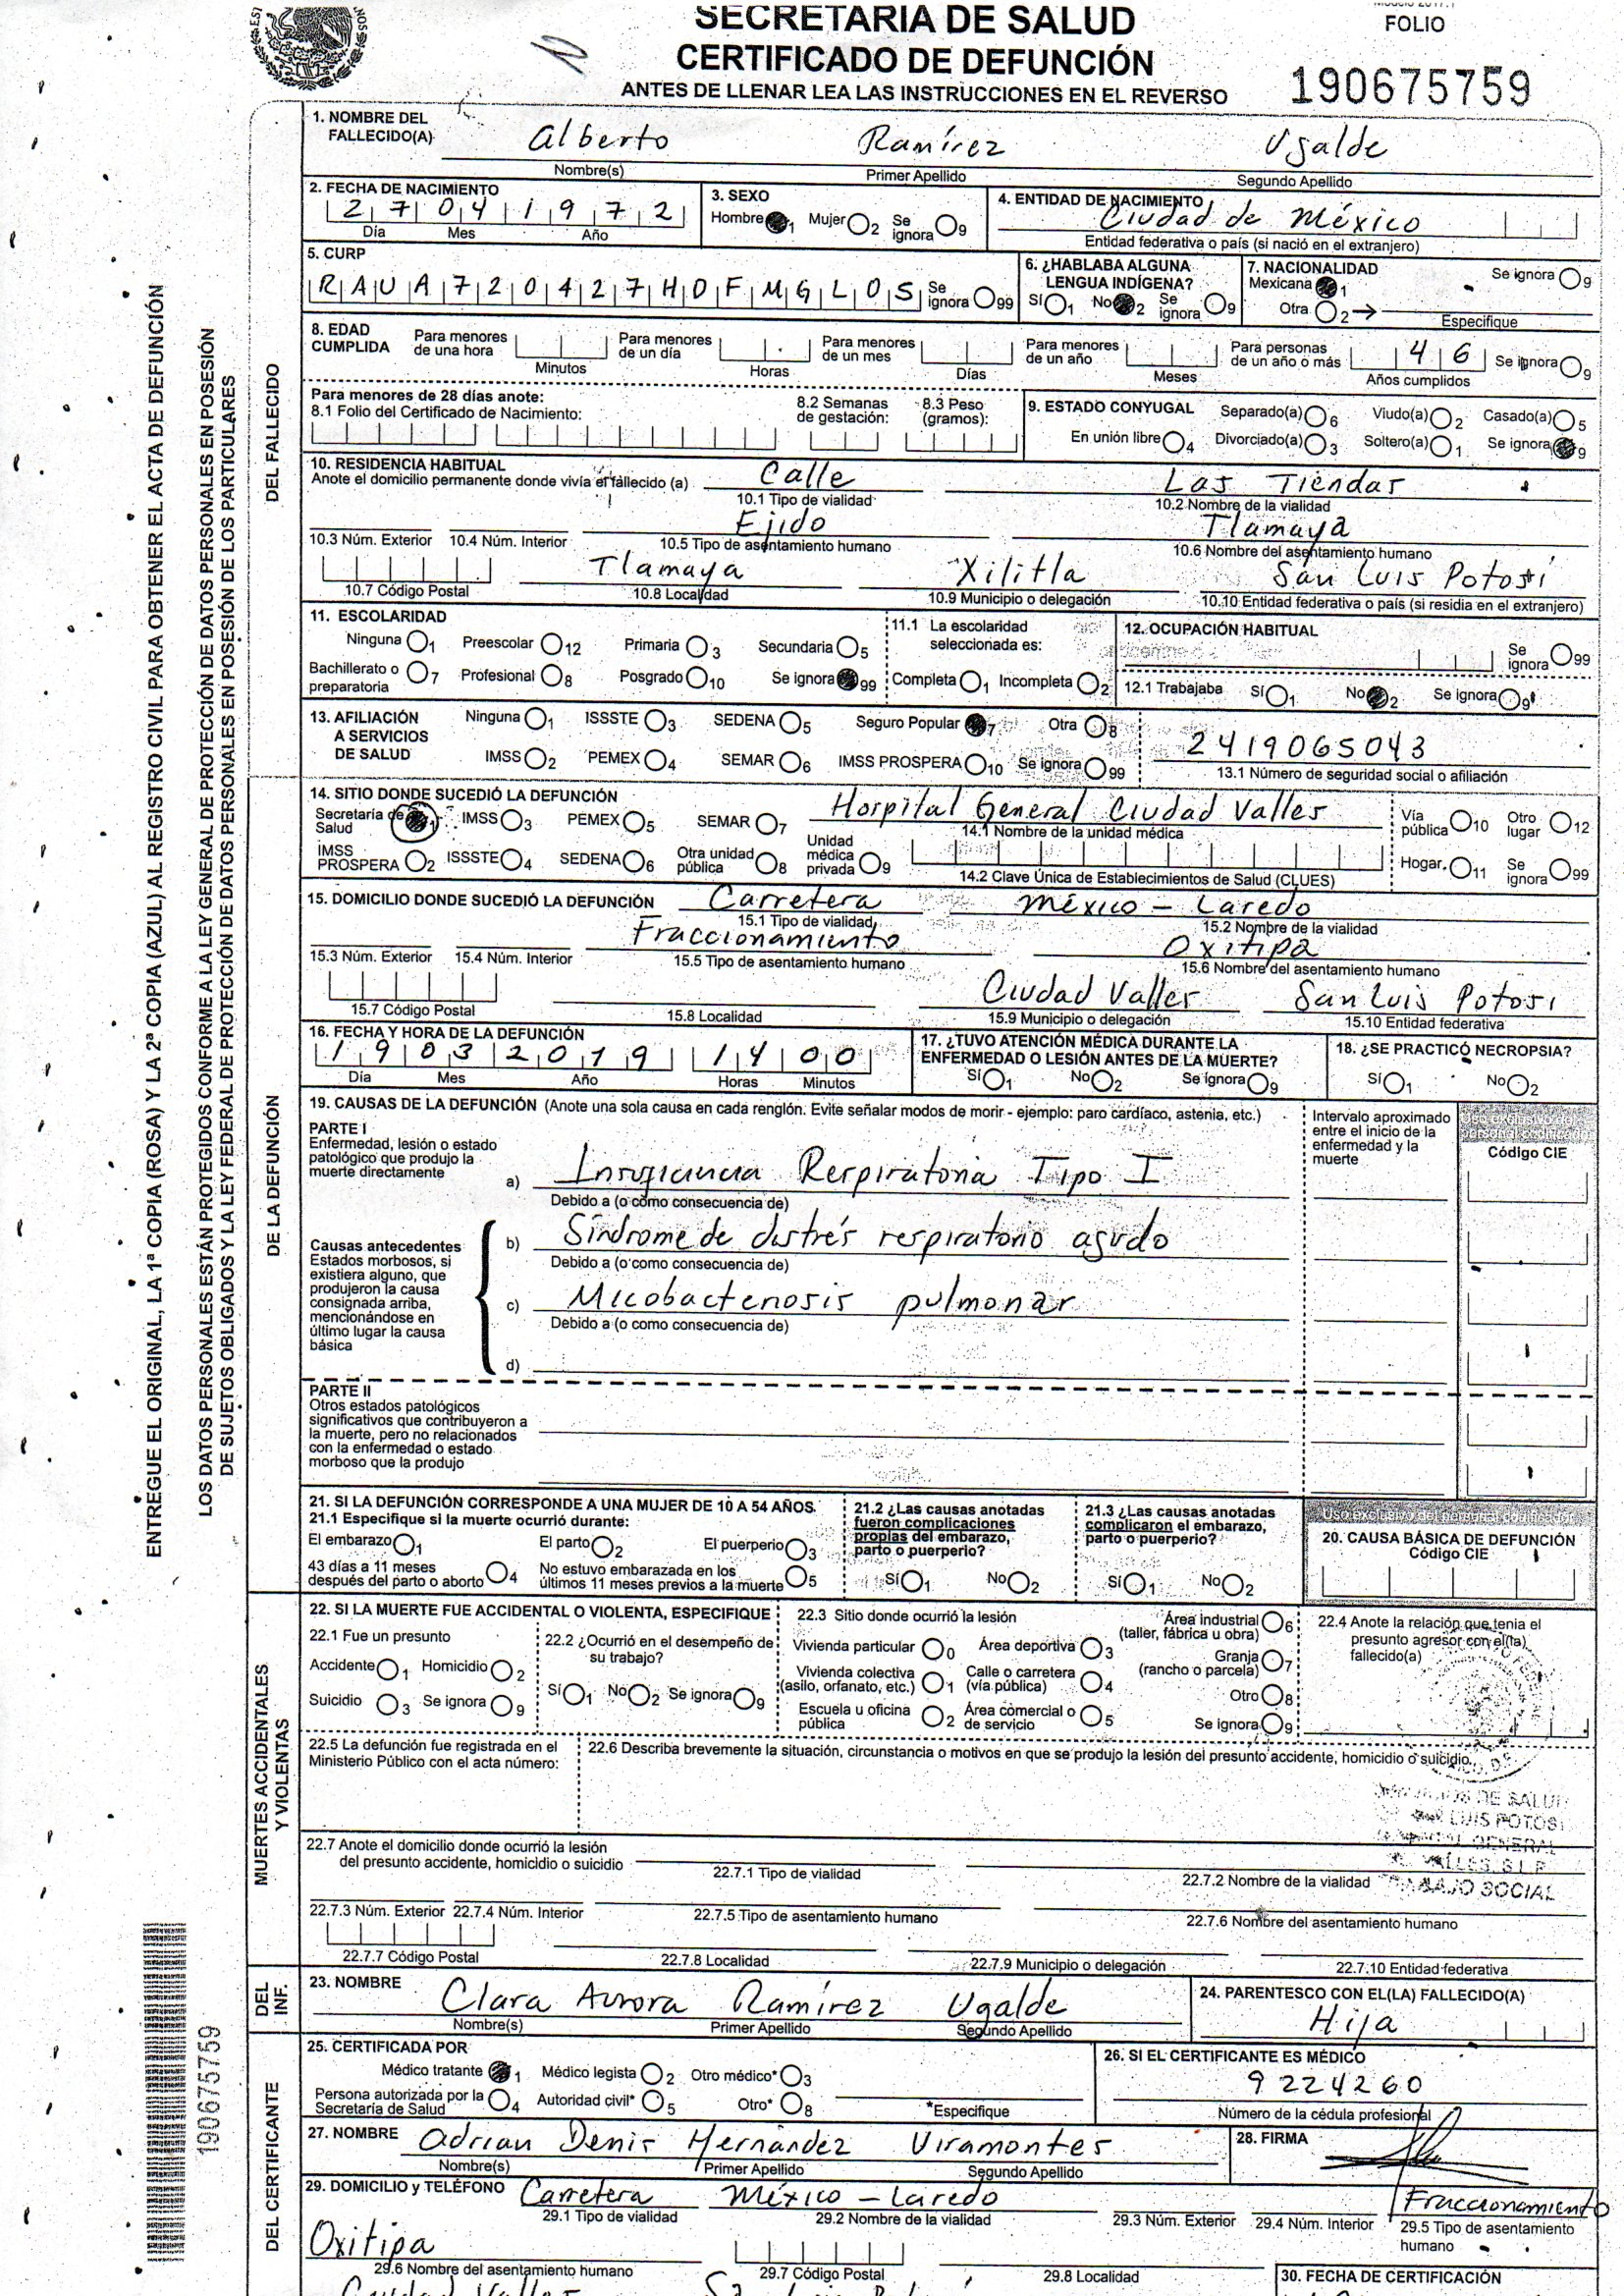 SECRETARIA DE SALUD
CERTIFICADO DE DEFUNCIÓN
ANTES DE LLENAR LEA LAS INSTRUCCIONES EN EL REVERSO
FOLIO
190675759
ENTREGUE EL ORIGINAL, LA 1ª COPIA (ROSA) Y LA 2ª COPIA (AZUL) AL REGISTRO CIVIL PARA OBTENER EL ACTA DE DEFUNCIÓN
LOS DATOS PERSONALES ESTÁN PROTEGIDOS CONFORME A LA LEY GENERAL DE PROTECCIÓN DE DATOS PERSONALES EN POSESIÓN
DE SUJETOS OBLIGADOS Y LA LEY FEDERAL DE PROTECCIÓN DE DATOS PERSONALES EN POSESIÓN DE LOS PARTICULARES
190675759
DEL FALLECIDO
1. NOMBRE DEL FALLECIDO(A) Alberto Ramírez Ugalde
Nombre(s) Primer Apellido Segundo Apellido
2. FECHA DE NACIMIENTO 27 04 1972
Día Mes Año
3. SEXO
Hombre 1 Mujer 2 Se ignora 9
4. ENTIDAD DE NACIMIENTO Ciudad de México
Entidad federativa o país (si nació en el extranjero)
5. CURP
RAUA720427HDFMGL05 Se ignora 99
6. ¿HABLABA ALGUNA LENGUA INDÍGENA?
Sí 1 No 2 Se ignora 9
7. NACIONALIDAD Se ignora 9
Mexicana 1
Otra 2 Especifique
8. EDAD CUMPLIDA
Para menores de una hora Minutos
Para menores de un día Horas
Para menores de un mes Días
Para menores de un año Meses
Para personas de un año o más 46 Años cumplidos
Se ignora 9
Para menores de 28 días anote:
8.1 Folio del Certificado de Nacimiento:
8.2 Semanas de gestación:
8.3 Peso (gramos):
9. ESTADO CONYUGAL Separado(a) 6 Viudo(a) 2 Casado(a) 5
En unión libre 4 Divorciado(a) 3 Soltero(a) 1 Se ignora 9
10. RESIDENCIA HABITUAL
Anote el domicilio permanente donde vivía el fallecido (a) Calle Las Tiendas
10.1 Tipo de vialidad 10.2 Nombre de la vialidad
Ejido Tlamaya
10.3 Núm. Exterior 10.4 Núm. Interior 10.5 Tipo de asentamiento humano 10.6 Nombre del asentamiento humano
Tlamaya Xilitla San Luis Potosí
10.7 Código Postal 10.8 Localidad 10.9 Municipio o delegación 10.10 Entidad federativa o país (si residia en el extranjero)
11. ESCOLARIDAD
Ninguna 1 Preescolar 12 Primaria 3 Secundaria 5
Bachillerato o preparatoria 7 Profesional 8 Posgrado 10 Se ignora 99
11.1 La escolaridad seleccionada es:
Completa 1 Incompleta 2
12. OCUPACIÓN HABITUAL
Se ignora 99
12.1 Trabajaba Sí 1 No 2 Se ignora 9
13. AFILIACIÓN A SERVICIOS DE SALUD
Ninguna 1 ISSSTE 3 SEDENA 5 Seguro Popular 7 Otra 8
IMSS 2 PEMEX 4 SEMAR 6 IMSS PROSPERA 10 Se ignora 99
2419065043
13.1 Número de seguridad social o afiliación
DE LA DEFUNCIÓN
14. SITIO DONDE SUCEDIÓ LA DEFUNCIÓN
Secretaría de Salud 1 IMSS 3 PEMEX 5 SEMAR 7
IMSS PROSPERA 2 ISSSTE 4 SEDENA 6 Otra unidad pública 8 Unidad médica privada 9
Hospital General Ciudad Valles
14.1 Nombre de la unidad médica
14.2 Clave Única de Establecimientos de Salud (CLUES)
Vía pública 10 Otro lugar 12
Hogar 11 Se ignora 99
15. DOMICILIO DONDE SUCEDIÓ LA DEFUNCIÓN Carretera México - Laredo
15.1 Tipo de vialidad 15.2 Nombre de la vialidad
Fraccionamiento Oxitipa
15.3 Núm. Exterior 15.4 Núm. Interior 15.5 Tipo de asentamiento humano 15.6 Nombre del asentamiento humano
Ciudad Valles San Luis Potosí
15.7 Código Postal 15.8 Localidad 15.9 Municipio o delegación 15.10 Entidad federativa
16. FECHA Y HORA DE LA DEFUNCIÓN
19 03 2019 14 00
Día Mes Año Horas Minutos
17. ¿TUVO ATENCIÓN MÉDICA DURANTE LA ENFERMEDAD O LESIÓN ANTES DE LA MUERTE?
Sí 1 No 2 Se ignora 9
18. ¿SE PRACTICÓ NECROPSIA?
Sí 1 No 2
19. CAUSAS DE LA DEFUNCIÓN (Anote una sola causa en cada renglón. Evite señalar modos de morir - ejemplo: paro cardíaco, astenia, etc.)
Intervalo aproximado entre el inicio de la enfermedad y la muerte
Código CIE
PARTE I
Enfermedad, lesión o estado patológico que produjo la muerte directamente
a) Insuficiencia Respiratoria Tipo I
Debido a (o como consecuencia de)
Causas antecedentes
Estados morbosos, si existiera alguno, que produjeron la causa consignada arriba, mencionándose en último lugar la causa básica
b) Síndrome de distrés respiratorio agudo
Debido a (o como consecuencia de)
c) Micobacteriosis pulmonar
Debido a (o como consecuencia de)
d)
PARTE II
Otros estados patológicos significativos que contribuyeron a la muerte, pero no relacionados con la enfermedad o estado morboso que la produjo
21. SI LA DEFUNCIÓN CORRESPONDE A UNA MUJER DE 10 A 54 AÑOS
21.1 Especifique si la muerte ocurrió durante:
El embarazo 1 El parto 2 El puerperio 3
43 días a 11 meses después del parto o aborto 4 No estuvo embarazada en los últimos 11 meses previos a la muerte 5
21.2 ¿Las causas anotadas fueron complicaciones propias del embarazo, parto o puerperio?
Sí 1 No 2
21.3 ¿Las causas anotadas complicaron el embarazo, parto o puerperio?
Sí 1 No 2
Uso exclusivo del personal codificador
20. CAUSA BÁSICA DE DEFUNCIÓN
Código CIE
MUERTES ACCIDENTALES Y VIOLENTAS
22. SI LA MUERTE FUE ACCIDENTAL O VIOLENTA, ESPECIFIQUE
22.1 Fue un presunto
Accidente 1 Homicidio 2
Suicidio 3 Se ignora 9
22.2 ¿Ocurrió en el desempeño de su trabajo?
Sí 1 No 2 Se ignora 9
22.3 Sitio donde ocurrió la lesión
Vivienda particular 0 Área deportiva 3 Área industrial (taller, fábrica u obra) 6
Vivienda colectiva (asilo, orfanato, etc.) 1 Calle o carretera (vía pública) 4 Granja (rancho o parcela) 7
Otro 8
Escuela u oficina pública 2 Área comercial o de servicio 5 Se ignora 9
22.4 Anote la relación que tenia el presunto agresor con el(la) fallecido(a)
22.5 La defunción fue registrada en el Ministerio Público con el acta número:
22.6 Describa brevemente la situación, circunstancia o motivos en que se produjo la lesión del presunto accidente, homicidio o suicidio
DE SALUD
LUIS POTOSI
GENERAL
VALLES, S.L.P.
TRABAJO SOCIAL
22.7 Anote el domicilio donde ocurrió la lesión del presunto accidente, homicidio o suicidio
22.7.1 Tipo de vialidad 22.7.2 Nombre de la vialidad
22.7.3 Núm. Exterior 22.7.4 Núm. Interior 22.7.5 Tipo de asentamiento humano 22.7.6 Nombre del asentamiento humano
22.7.7 Código Postal 22.7.8 Localidad 22.7.9 Municipio o delegación 22.7.10 Entidad federativa
DEL INF.
23. NOMBRE Clara Aurora Ramírez Ugalde
Nombre(s) Primer Apellido Segundo Apellido
24. PARENTESCO CON EL(LA) FALLECIDO(A)
Hija
DEL CERTIFICANTE
25. CERTIFICADA POR
Médico tratante 1 Médico legista 2 Otro médico* 3
Persona autorizada por la Secretaría de Salud 4 Autoridad civil* 5 Otro* 8 *Especifique
26. SI EL CERTIFICANTE ES MÉDICO
9224260
Número de la cédula profesional
27. NOMBRE Adrian Denis Hernández Viramontes
Nombre(s) Primer Apellido Segundo Apellido
28. FIRMA
29. DOMICILIO y TELÉFONO Carretera México - Laredo Fraccionamiento
29.1 Tipo de vialidad 29.2 Nombre de la vialidad 29.3 Núm. Exterior 29.4 Núm. Interior 29.5 Tipo de asentamiento humano
Oxitipa
29.6 Nombre del asentamiento humano 29.7 Código Postal 29.8 Localidad
30. FECHA DE CERTIFICACIÓN
Ciudad Valles